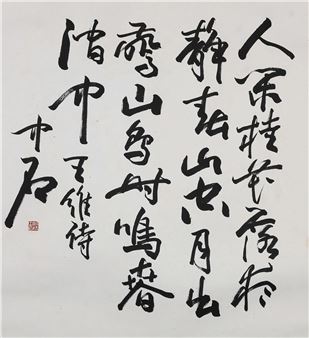 人閑桂花落夜
靜春山空月出
驚山鳥時鳴春
澗中 王維詩
中石